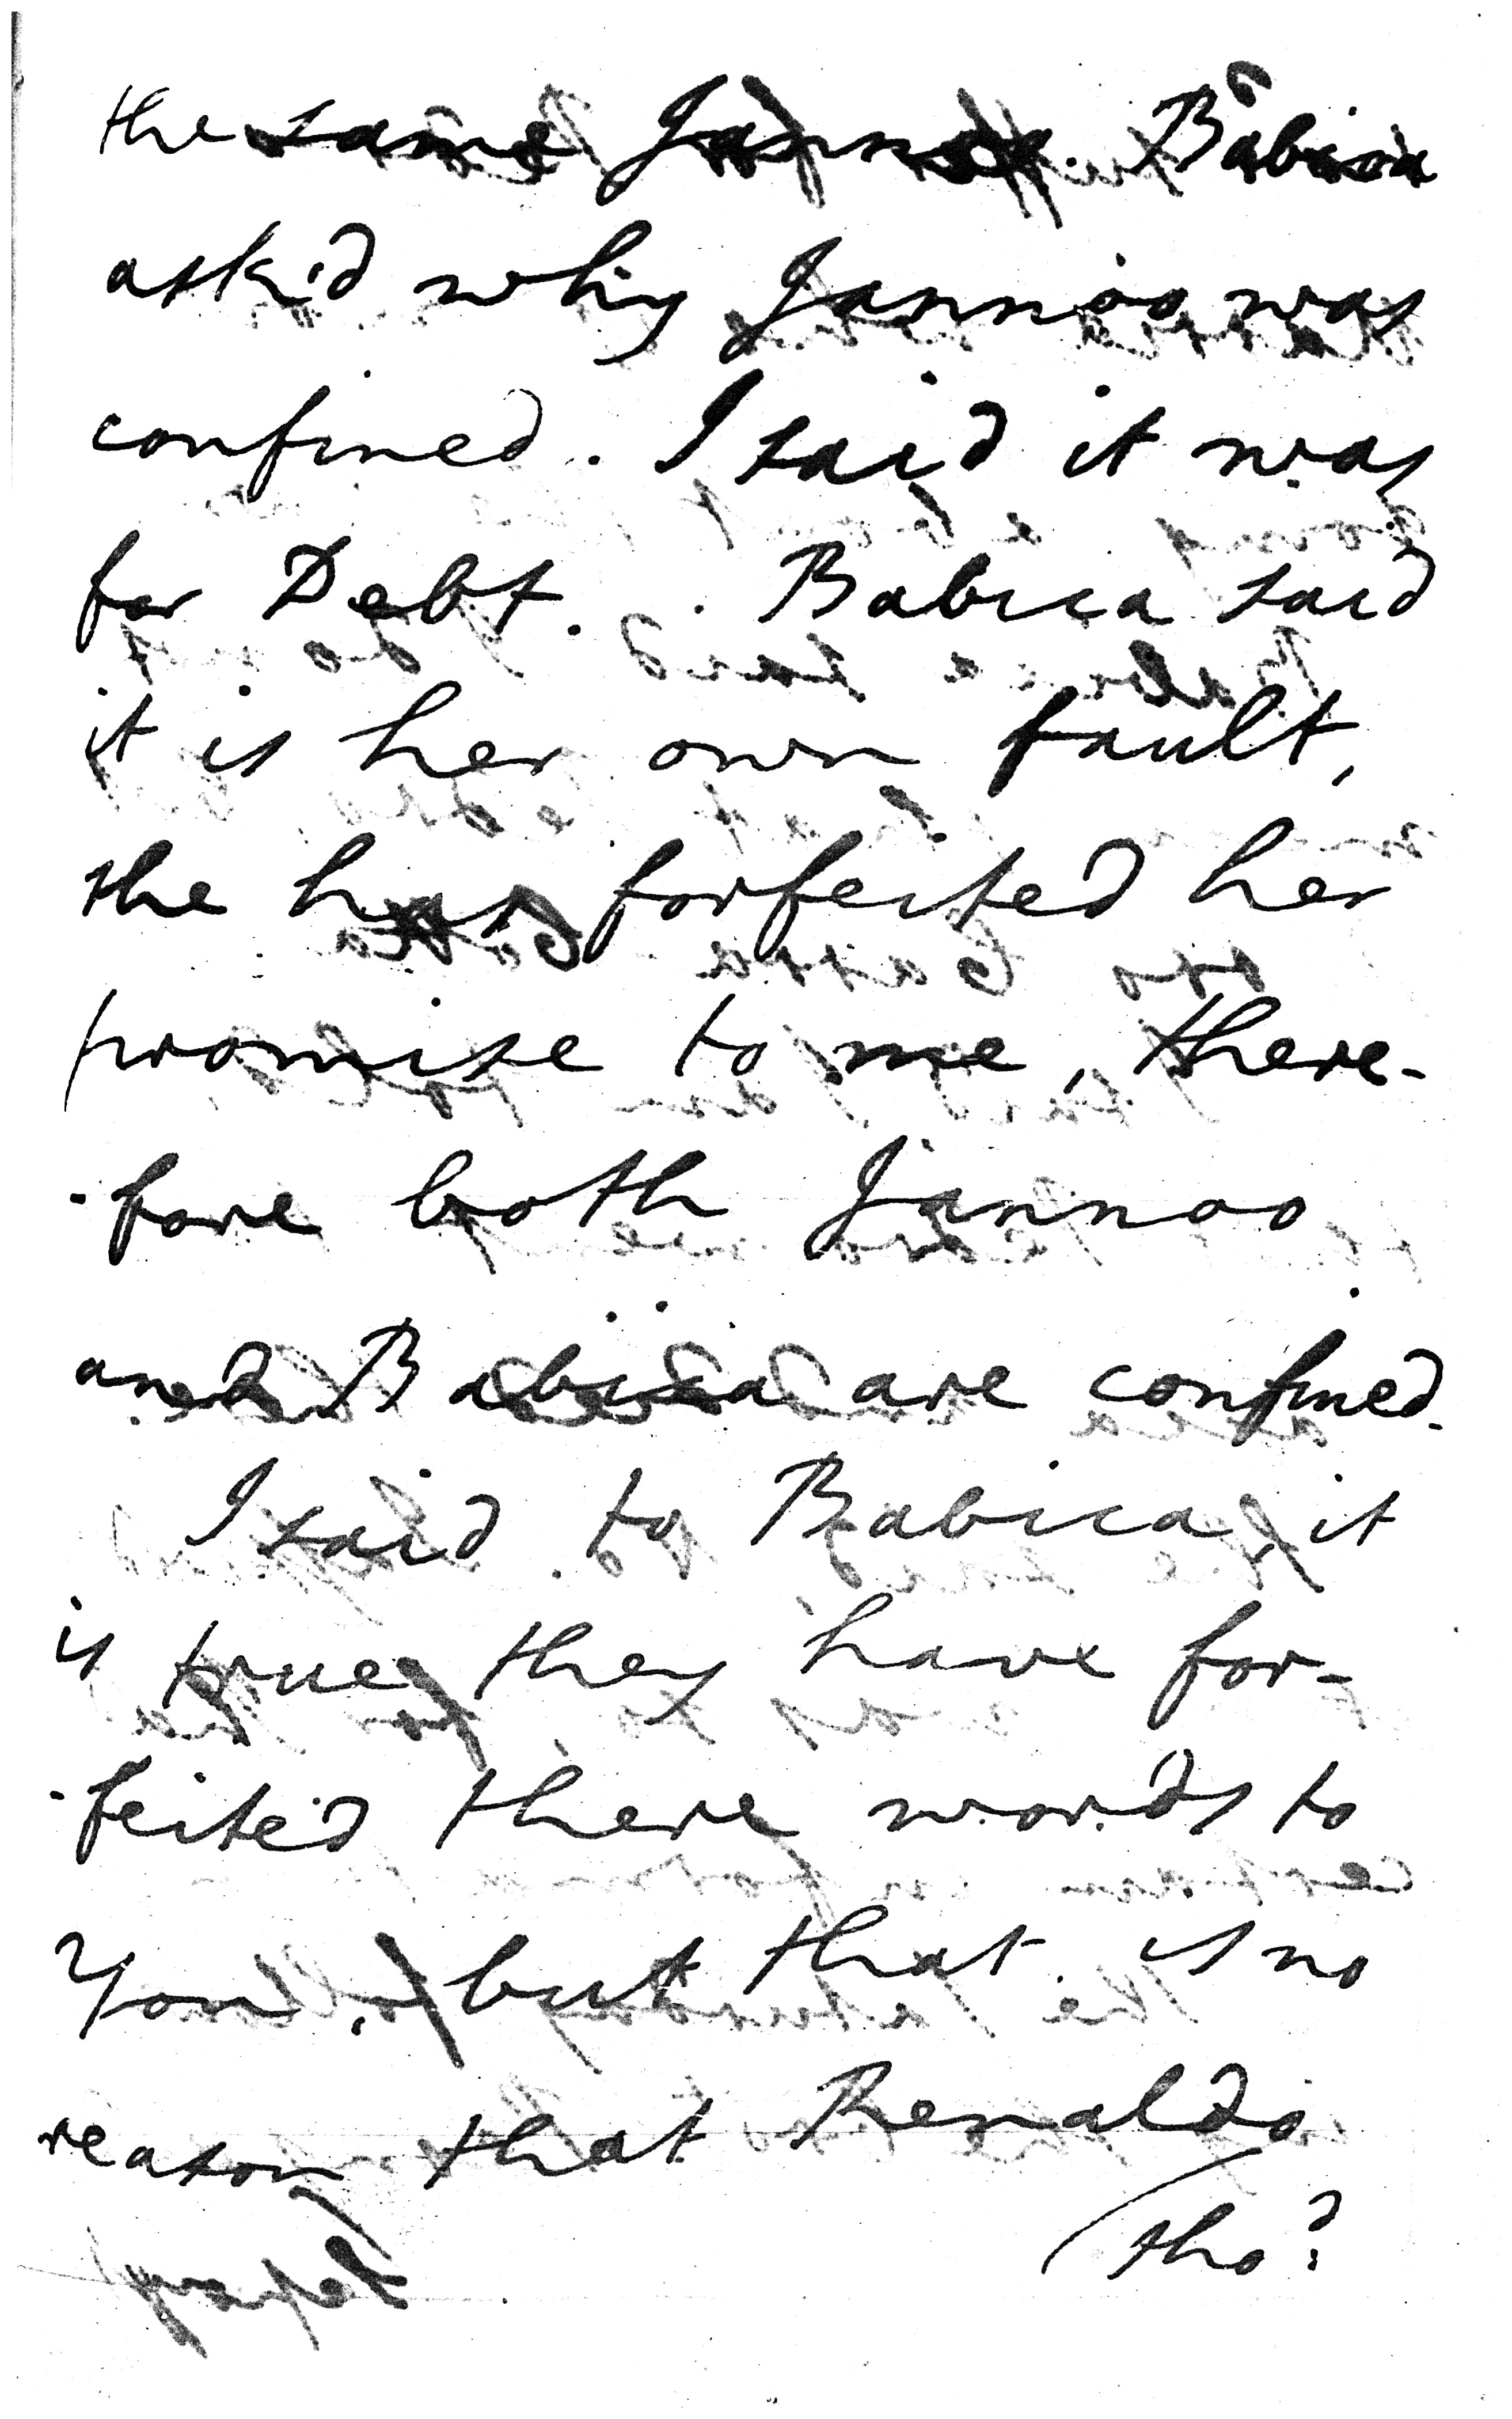 the same Jannoo. Babica
ask'd why Jannoo was
confined. I said it was
for Debt. Babica said
it is her own fault,
she has forfeited her
promise to me, there-
-fore both Jannoo
and Babica are confined.
I said to Babica it
is true they have for-
-feited there words to
You, but that is no
reason that Renaldo
sho:d